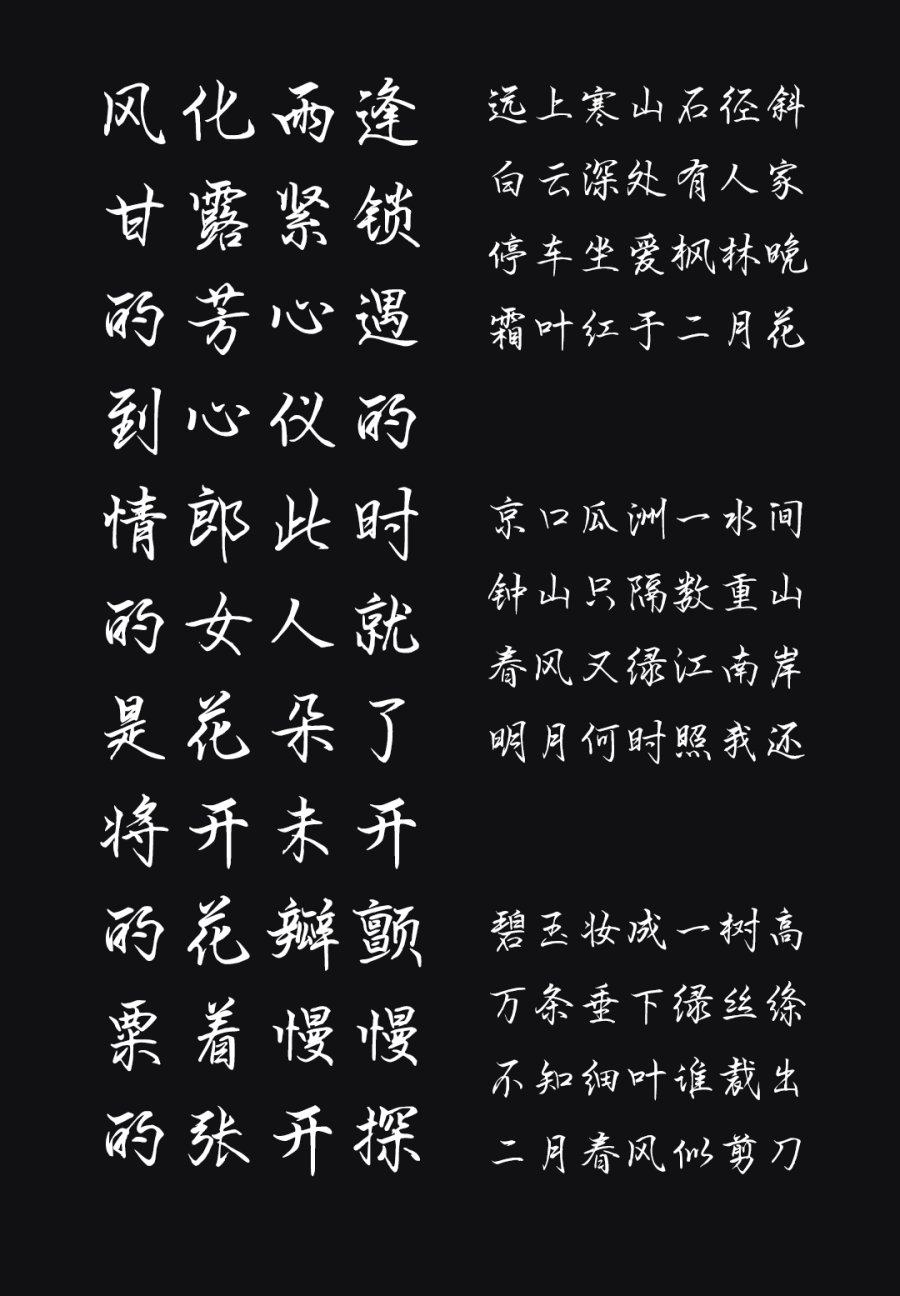 风化雨逢
甘露紧锁
的芳心遇
到心仪的
情郎此时
的女人就
是花朵了
将开未开
的花瓣颤
粟着慢慢
的张开探
远上寒山石径斜
白云深处有人家
停车坐爱枫林晚
霜叶红于二月花
京口瓜洲一水间
钟山只隔数重山
春风又绿江南岸
明月何时照我还
碧玉妆成一树高
万条垂下绿丝绦
不知细叶谁裁出
二月春风似剪刀